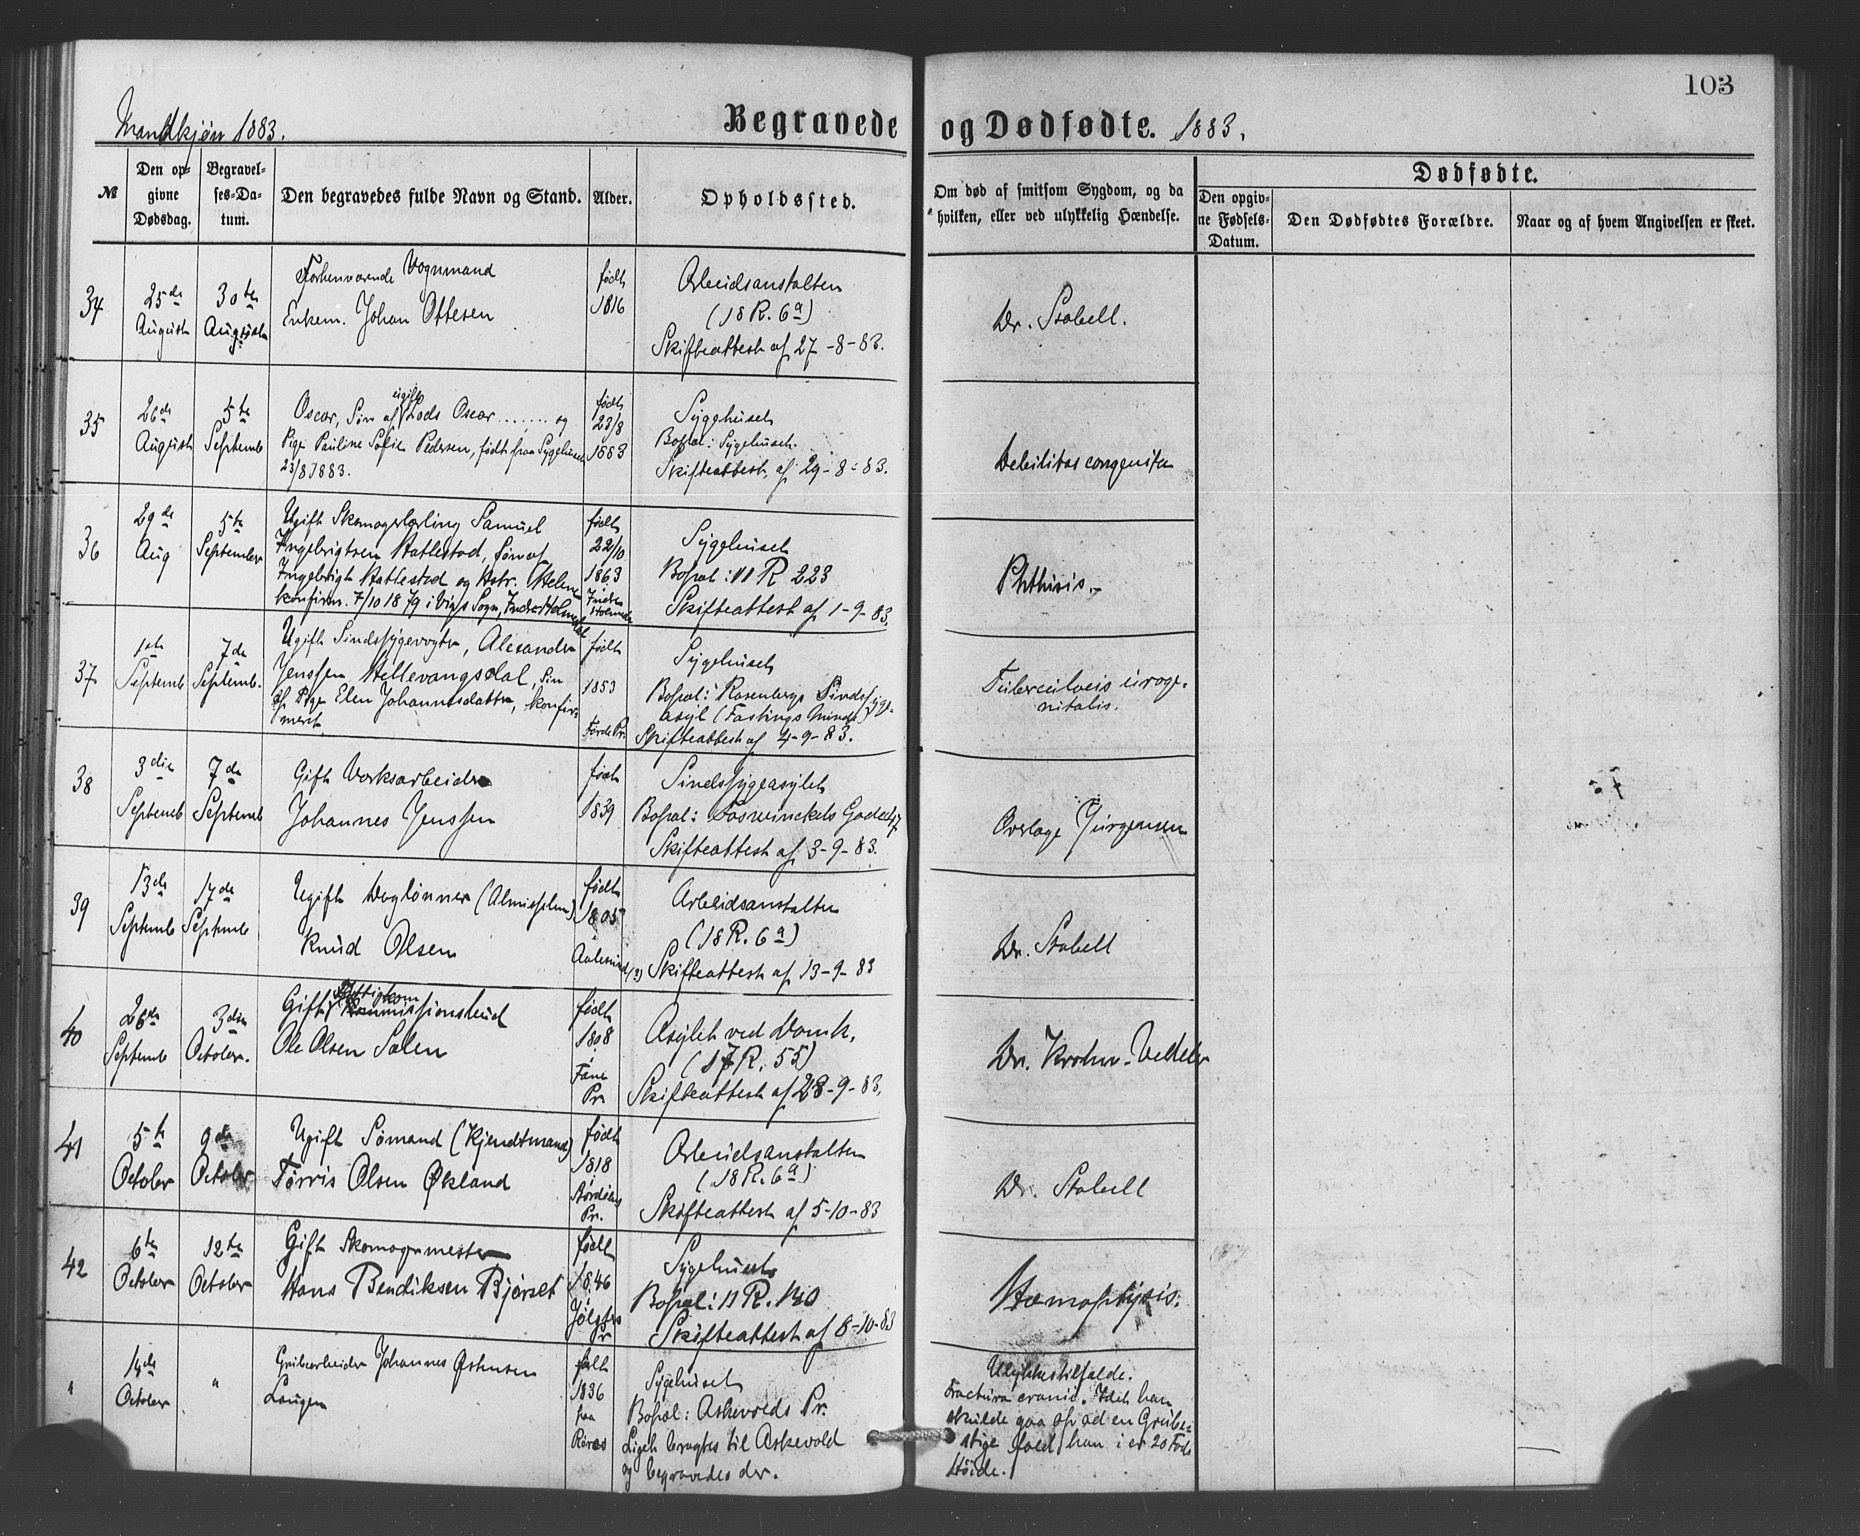 103
Mandkjøn 1883.
Begravede og Dødfødte. 1883.
№
Den op-
givne
Dødsdag.
Begravel-
ses-Da-
tum.
Den begravedes fulde Navn og Stand.
Alder.
Opholdssted.
Om død af smitsom Sygdom, og da
hvilken, eller ved ulykkelig Hændelse.
Dødfødte.
Den opgiv-
ne Fødsels-
Datum.
Den Dødfødtes Forældre.
Naar og af hvem Angivelsen er skeet.
34
25de
August
30te
August
Forhenværende Vognmand
Enkem. Johan Ottesen
født
1816
Arbeidsanstalten
(18 R. 6a)
Skifteattest af 27-8-83.
Dr. Stabell.
35
26de
August
5te
Septemb
Oscar, Søn af ugift Lods Oscar ....... og
Pige Pauline Sofie Pedersen, født paa Sygehuset
23/8 1883.
født
23/8
1883
Sygehuset
Bopæl: Sygehuset.
Skifteattest af 29-8-83.
Debilitas congenita
36
29de
Aug
5te
September
Ugift Skomagerlærling Samuel
Ingebrigtsen Hatlestad, Søn af
Ingebrigt Hatlestad og Hstr. Helene
konfirm. 7/10 1879 i Vigs Sogn, Indre Holmedal
født
22/10
1863
Indre
Holmedal
Sygehuset
Bopæl: 11 R 223
Skifteattest af 1-9-83.
Phthisis.
37
1ste
Septemb
7de
Septemb.
Ugift Sindssygevogter, Alexander
Jenssen Hellevangsdal, Søn
af Pige Elen Johannesdatter, konfir-
meret
født
1853
Førde Pr.
Sygehuset
Bopæl: Rosenbergs Sindssyge-
asyl (Fastings Minde)
Skifteattest af 4-9-83.
Tuberculosis uroge-
nitalis.
38
3die
Septemb
7de
Septemb
Gift Værksarbeider
Johannes Jenssen
født
1839
Sindssygeasylet
Bopæl: Foswinckels Gade 17
Skifteattest af 3-9-83.
Overlæge Jürgensen
39
13de
Septemb
17de
Septemb
Ugift Daglønner (Almisselem)
Knud Olsen
født
1805
Aalesund (?)
Arbeidsanstalten
(18 R. 6a)
Skifteattest af 13-9-83
Dr. Stabell
40
26de
Septemb
3die
October.
Gift Fattigkommissionsbud
Ole Olsen Salen
født
1808
Fane
Pr.
Asylet ved Domk.
(17 R. 55)
Skifteattest af 28-9-83.
Dr. Krohn-Vedeler
41
5te
October
9de
October
Ugift Sømand (Kjendtmand)
Tørris Olsen Økland
født
1818
Størdøens
Pr.
Arbeidsanstalten
(18 R. 6a)
Skifteattest af 5-10-83
Dr. Stabell
42
6te
October
12te
October
Gift Skomagermester
Hans Bendiksen Bjørset
født
1846
Jølsters
Pr
Sygehuset
Bopæl: 11 R. 140
Skifteattest af 8-10-83
Hæmoptysis.
"
14de
October
"
Grubearbeider Johannes Østensen
Laugen
født
1836
paa
Røros
Sygehuset
Bopæl: Askevolds Pr.
Liget bragtes til Askevold
og begravedes der.
Ulykkestilfælde.
Fractura cranii. Idet han
skulde gaa op ad en Grube-
stige faldt han i er 20 Fods
Høide.